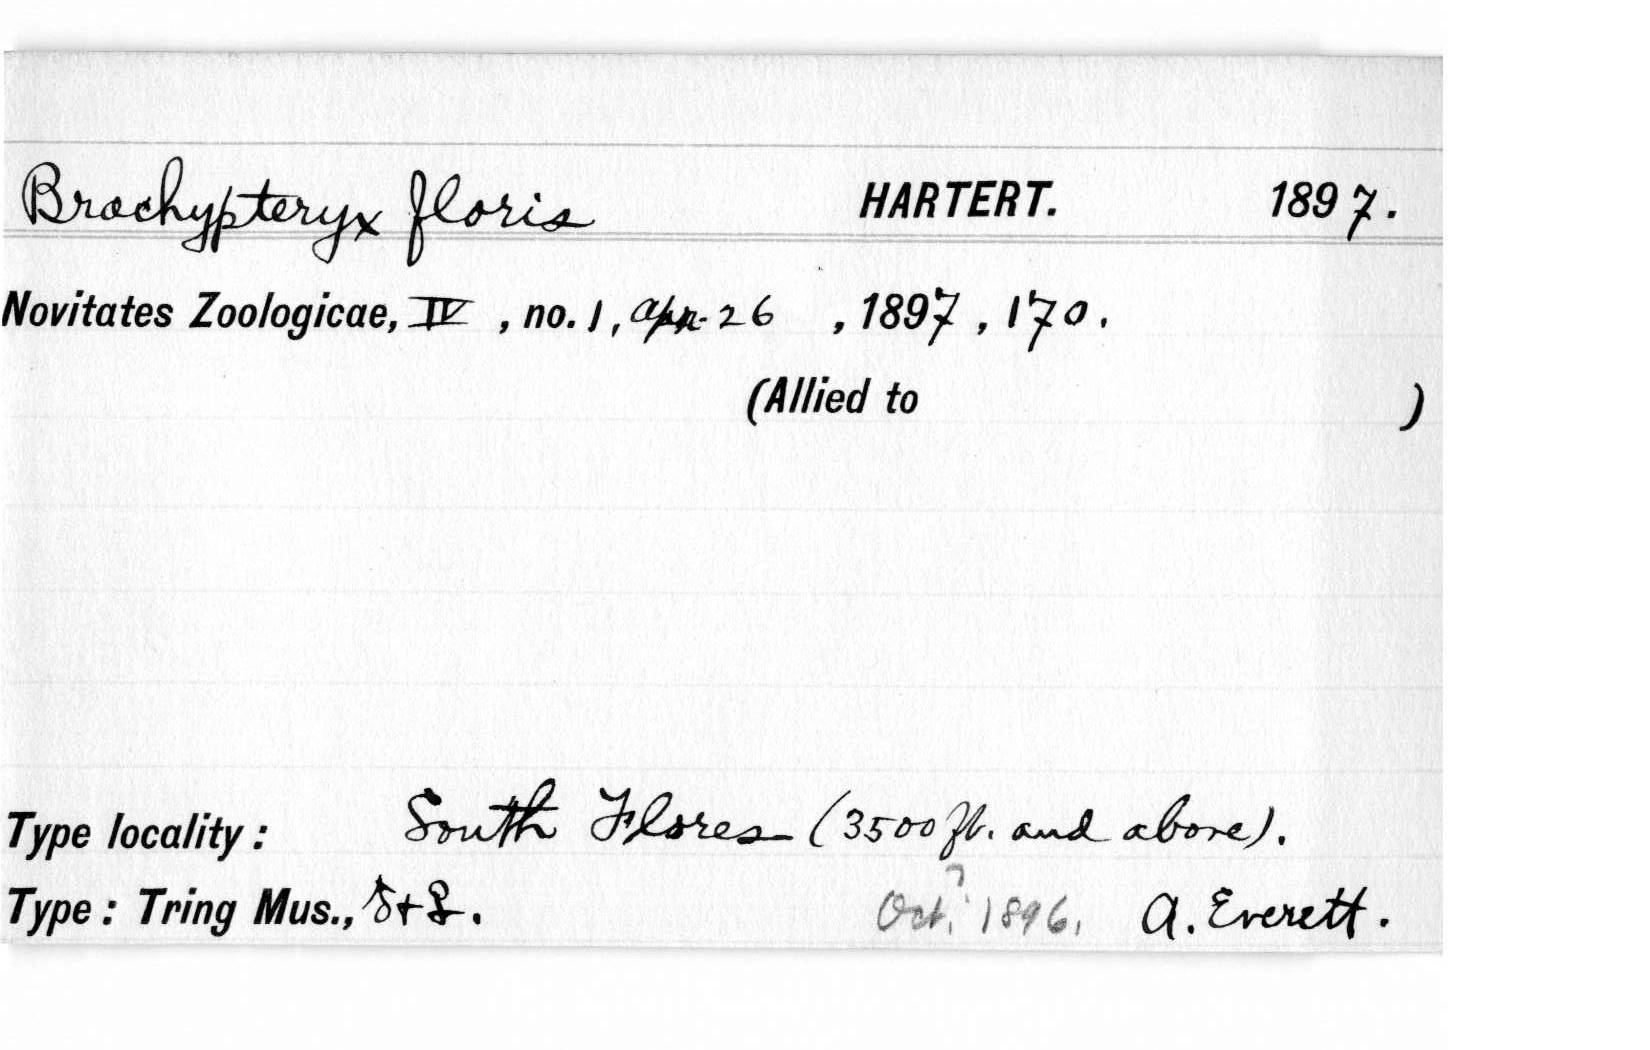 Brachypteryx floris HARTERT. 1897.
Novitates Zoologicae, IV, no. 1, Apr. 26, 1897, 170.
(Allied to )
Type locality: South Flores (3500 ft. and above).
Type: Tring Mus., ♂+♀. Oct.? 1896. A. Everett.